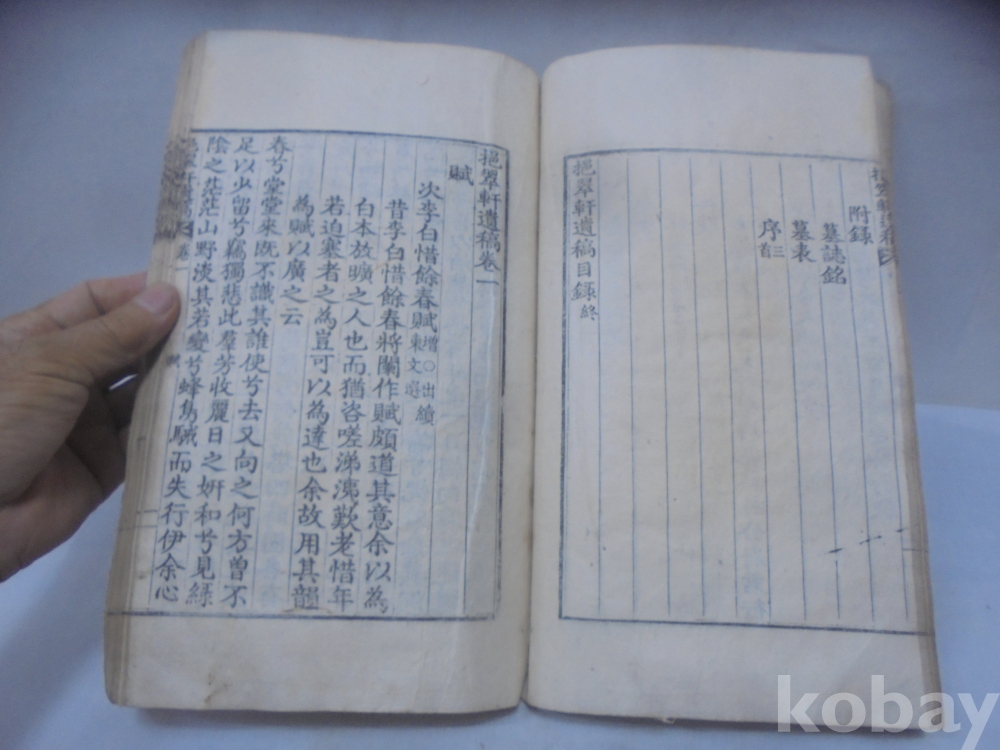 附錄
墓誌銘
墓表
序三首
挹翠軒遺稿目錄終
挹翠軒遺稿卷一
賦
次李白惜餘春賦增○出續東文選
昔李白惜餘春將闌作賦頗道其意余以為
白本放曠之人也而猶咨嗟涕洟歎老惜年
若迫塞者之為豈可以為達也余故用其韻
為賦以廣之云
春兮堂堂來既不識其誰使兮去又向之何方曾不
足以少留兮竊獨悲此羣芳收麗日之妍和兮見綠
陰之茫茫山野淡其若變兮蜂鳥駴而失行伊余心
kobay